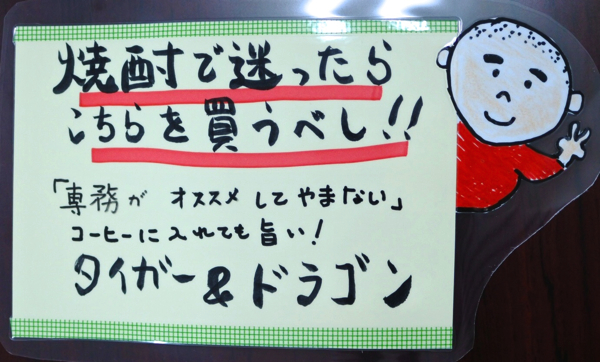 焼酎で迷ったら
こちらを買うべし!!
「専務が オススメしてやまない」
コーヒーに入れても旨い!
タイガー&ドラゴン